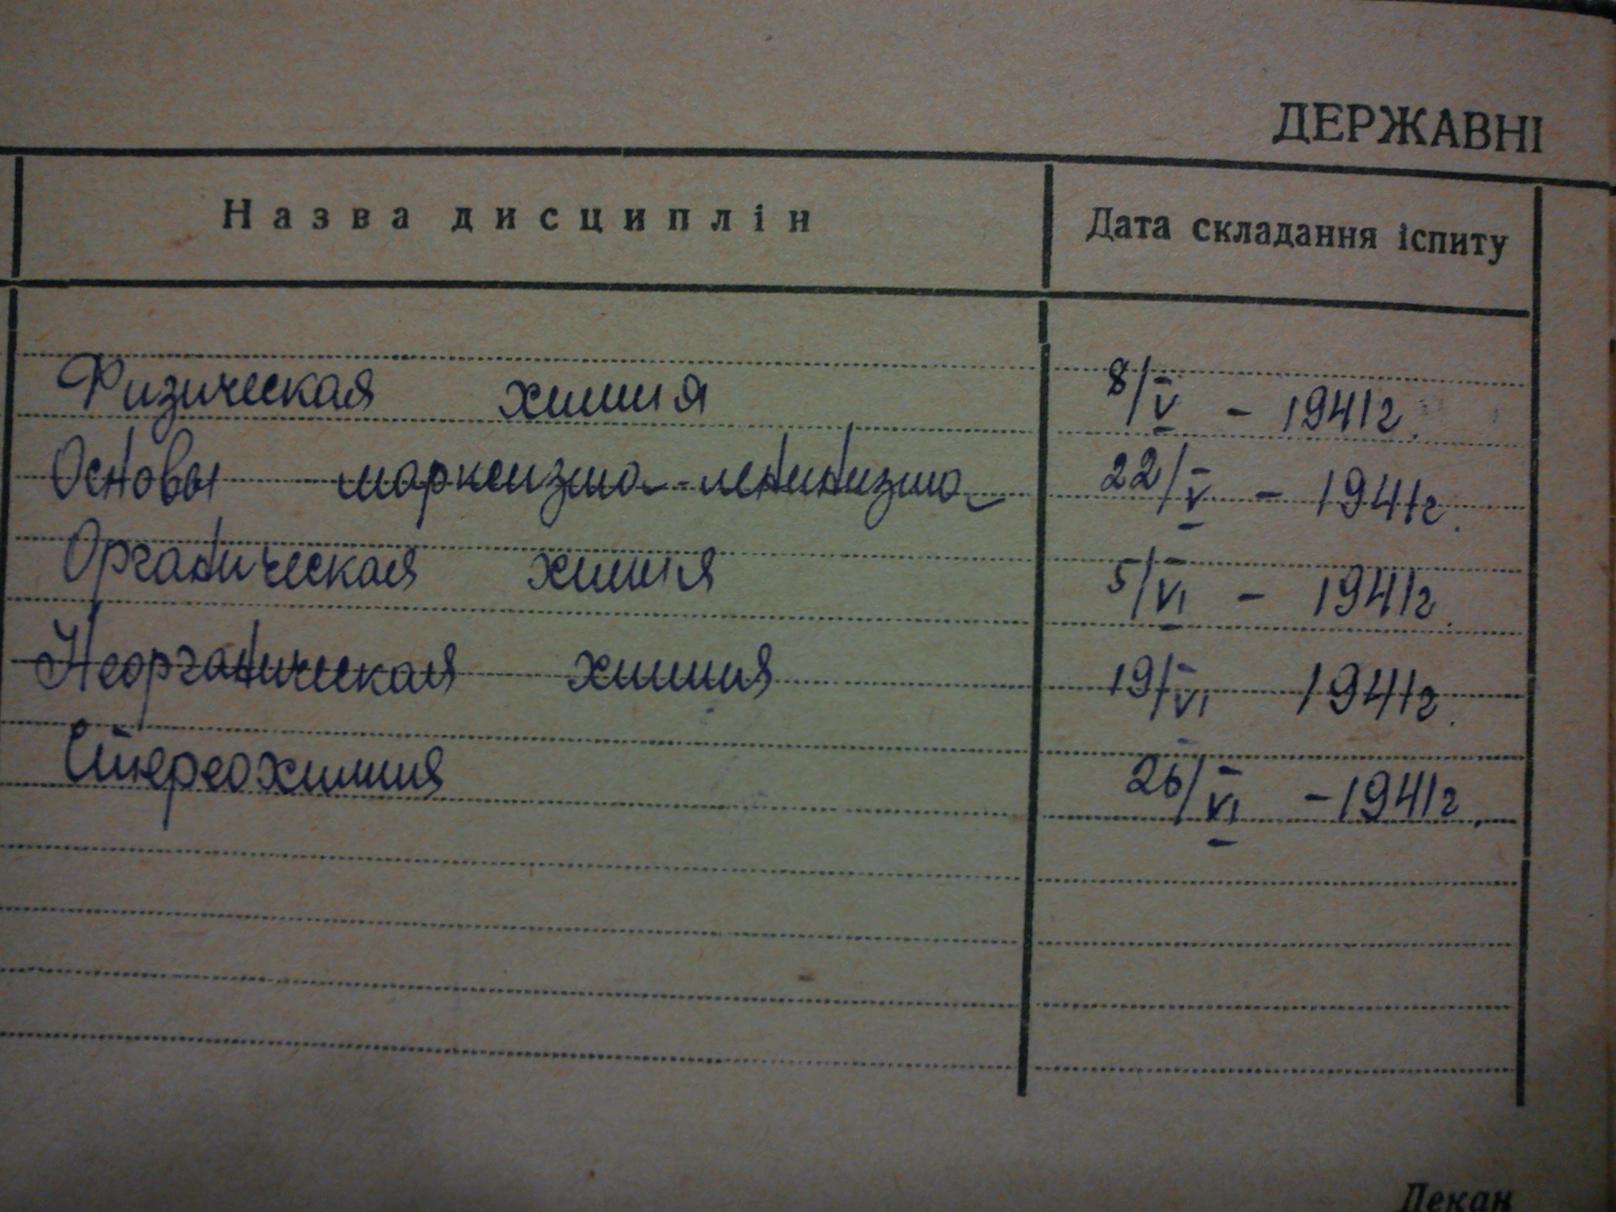 ДЕРЖАВНІ
Назва дисциплін Дата складання іспиту
Физическая химия 8/V - 1941г.
Основы марксизма-ленинизма 22/V - 1941г.
Органическая химия 5/VI - 1941г.
Неорганическая химия 19/VI 1941г.
Стереохимия 26/VI - 1941г.
Декан